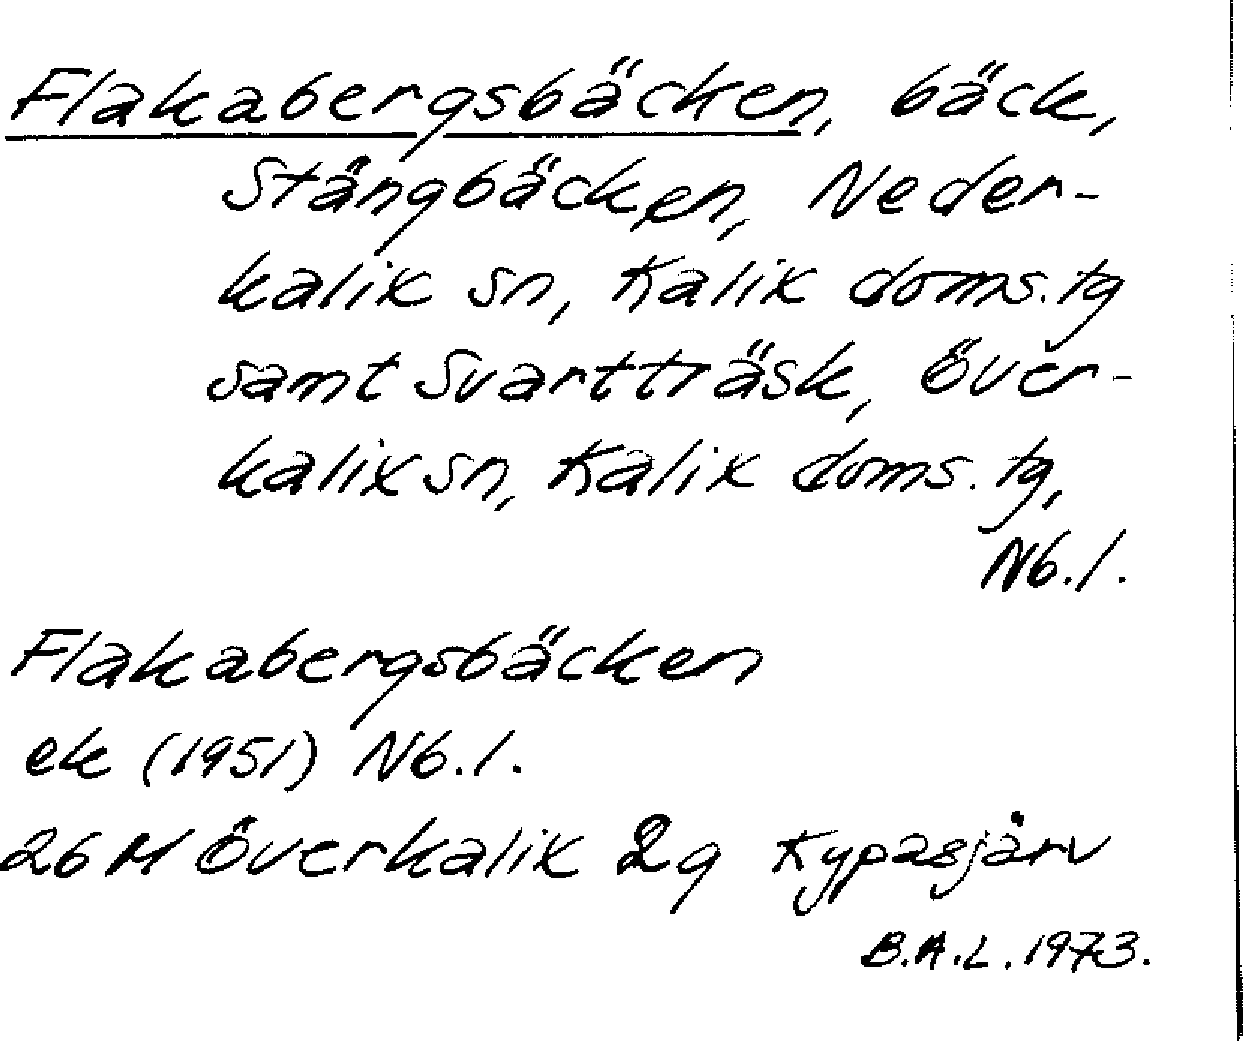 Flakabergsbäcken, bäck,
Stångbäcken, Neder-
kalix sn, Kalix doms. tg
samt Svartträsk, Över-
kalix sn, Kalix doms. tg,
Nb. l.
Flakabergsbäcken
ek (1951) Nb. l.
26 M Överkalix 2g Kypasjärv
B.A.L. 1973.